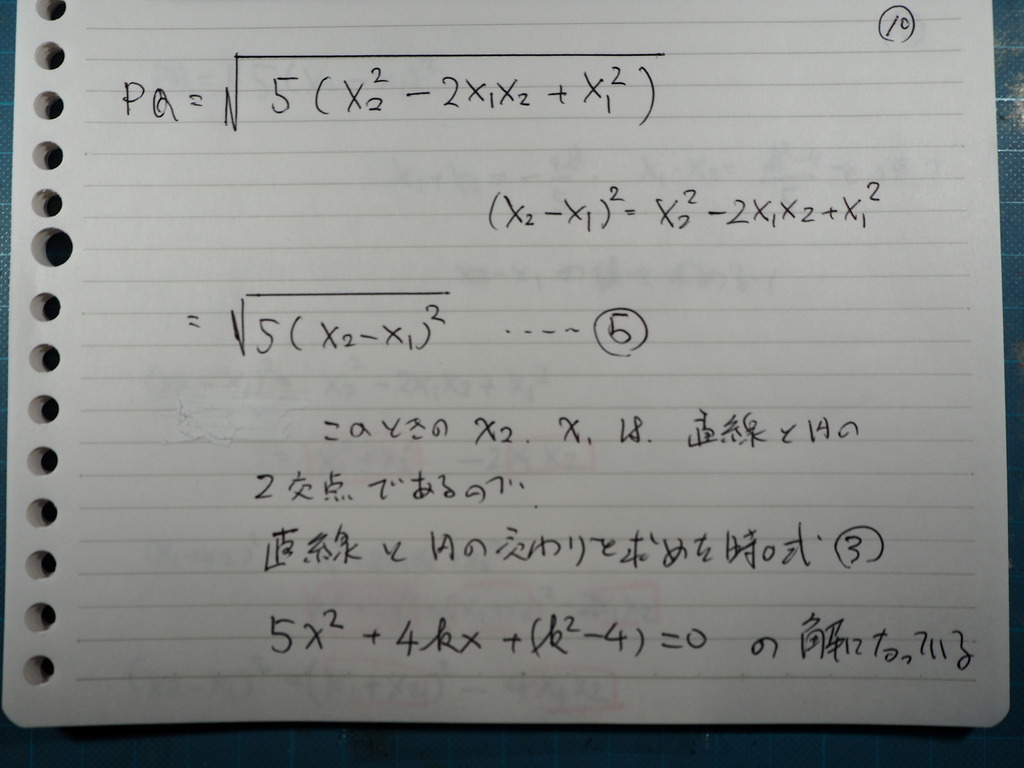 ⑩
PQ = √5(x₂² - 2x₁x₂ + x₁²)
(x₂ - x₁)² = x₂² - 2x₁x₂ + x₁²
= √5(x₂ - x₁)² ····· ⑤
このときの x₂. x₁ は. 直線と円の
2交点であるので..
直線と円の交わりを求めた時の式 ③
5x² + 4kx + (k² - 4) = 0 の解になっている